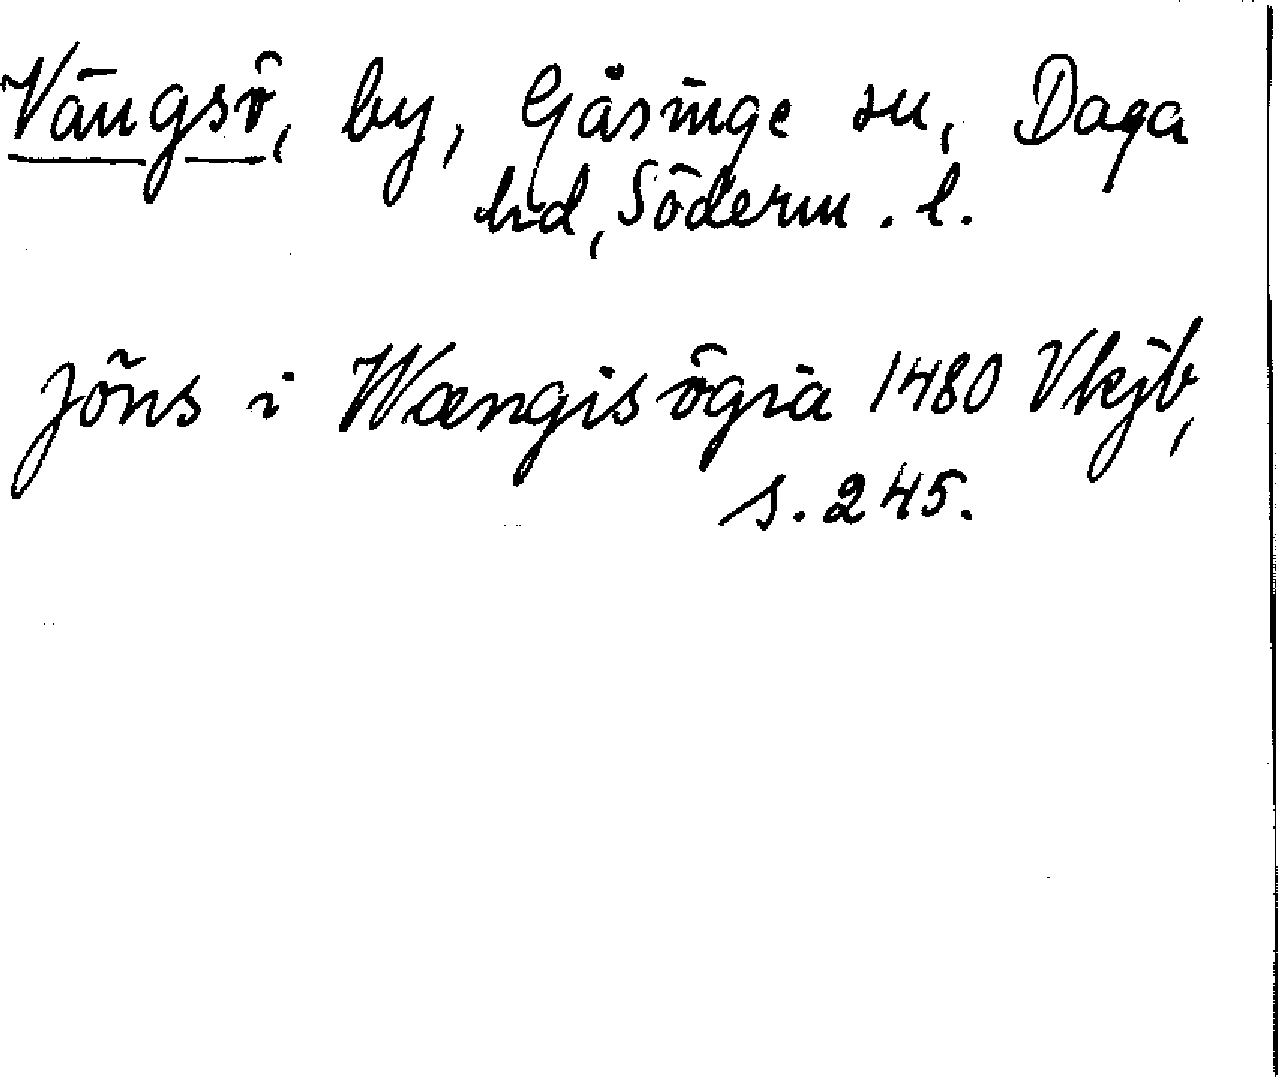 Vängsö, by, Gåsinge sn, Daga
hd, Söderm. l.
Jöns i Wængisögia 1480 Vkjb,
s. 245.